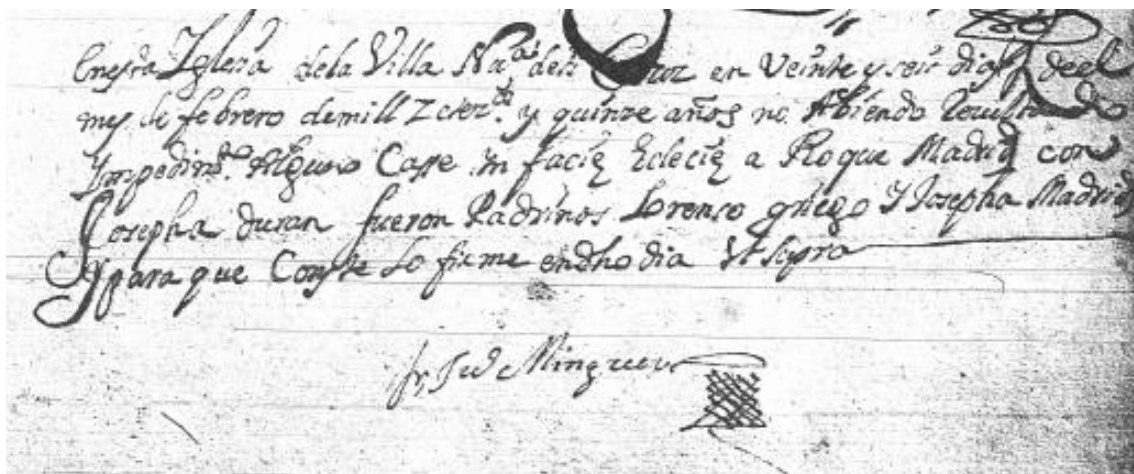 En esta Iglesia de la Villa Na de la Cruz en Veinte y seis dias deel
mes de febrero de mill Z cietos y quinze años no Abiendo Resultado
Impedimto Alguno Casse in facie Eclecie a Roque Madrid con
Josepha duran fueron Padrinos Lorenco griego Y Josepha Madrid
Y para que Conste Lo firme en dho dia Vt Supra
fr, Jud Mingues